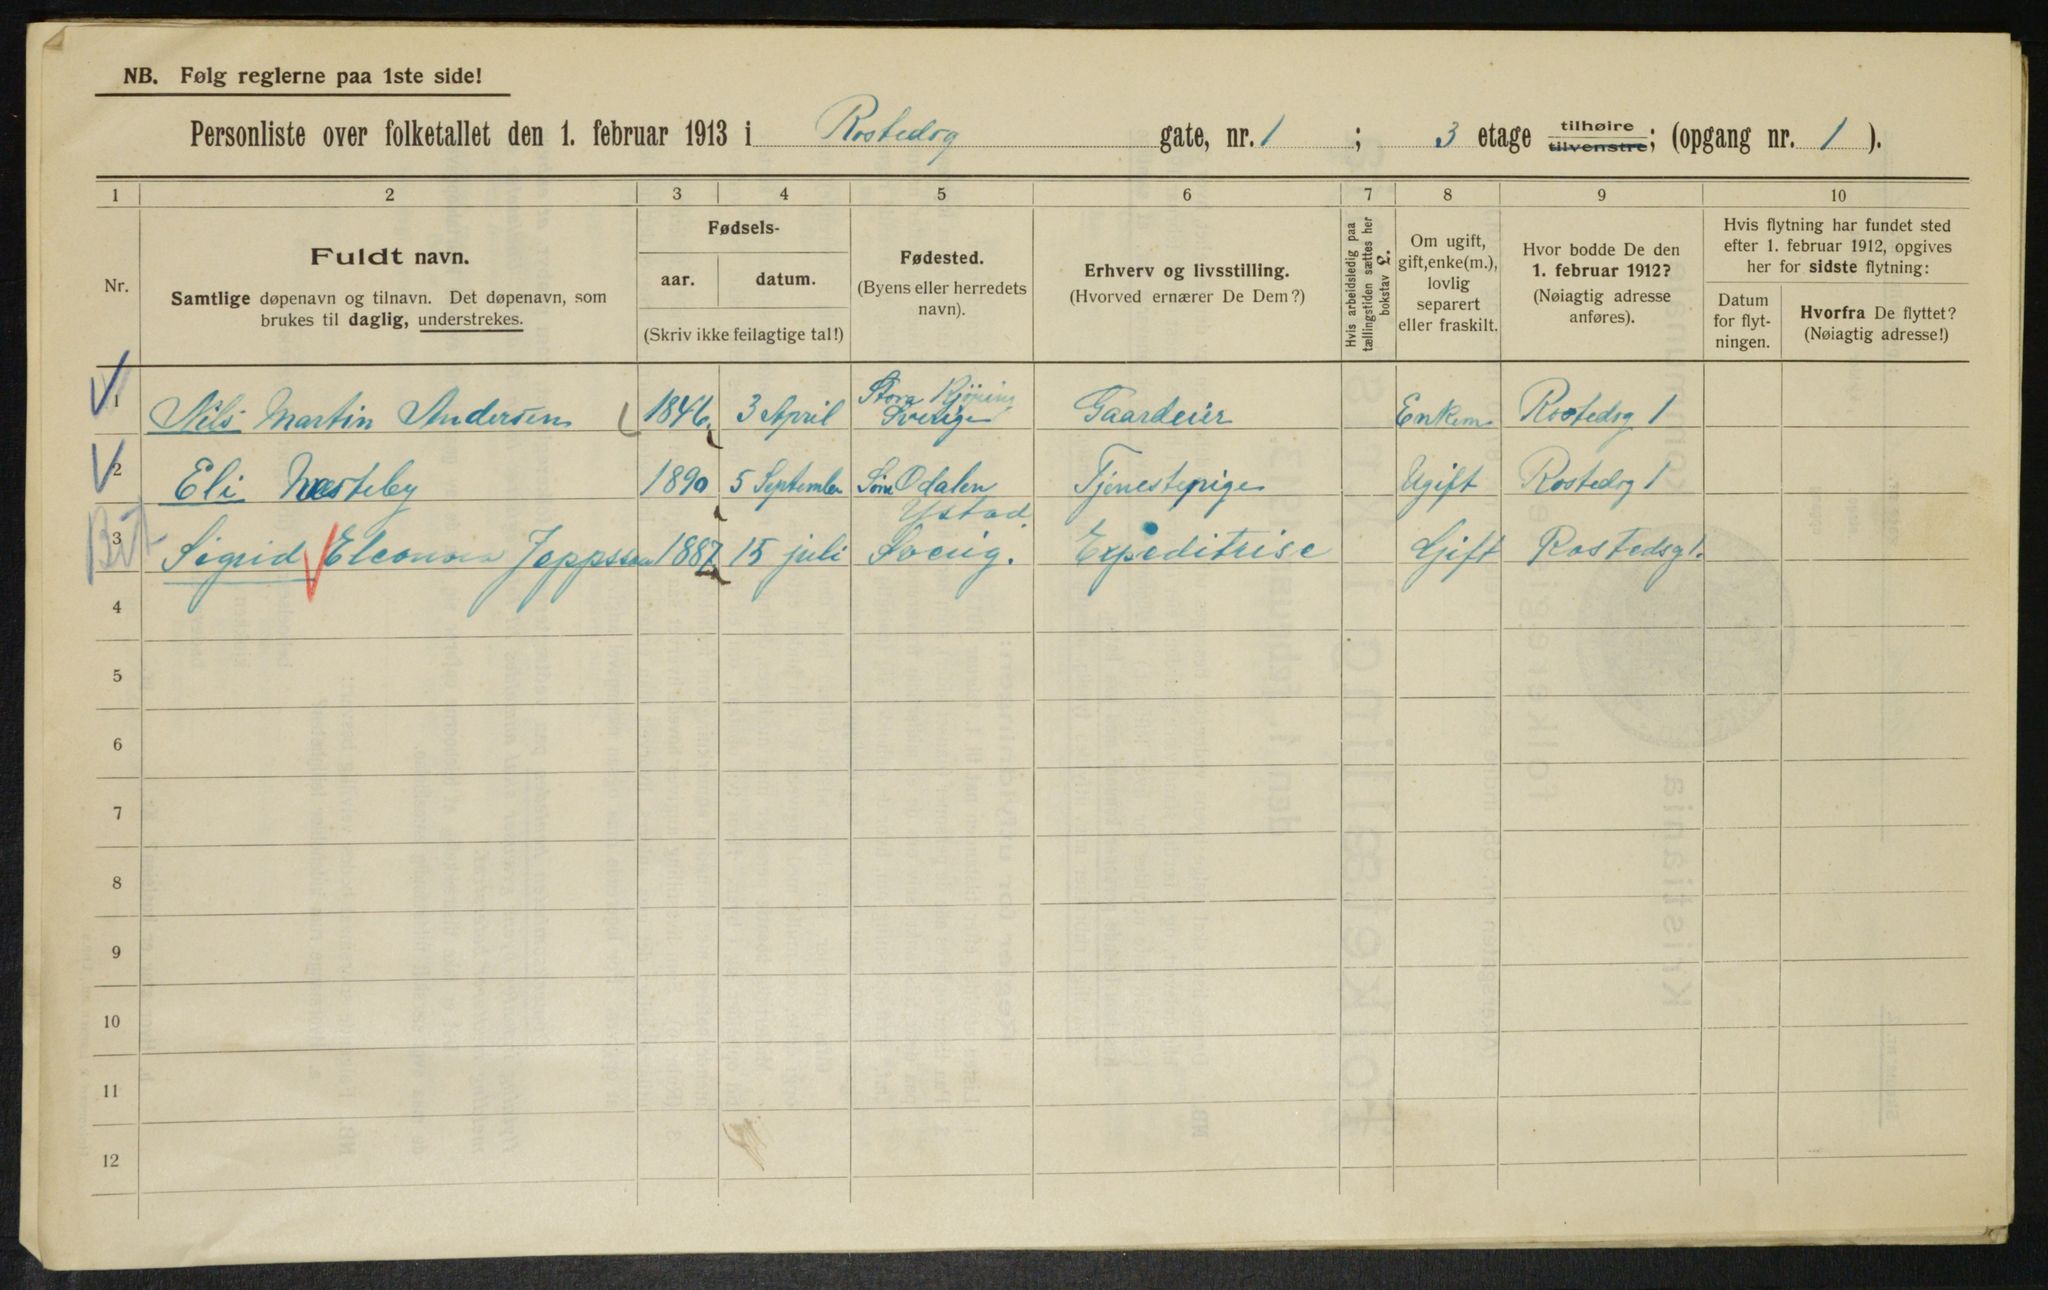 NB. Følg reglerne paa 1ste side!
Personliste over folketallet den 1. februar 1913 i Rostedsg gate, nr. 1 ; 3 etage tilhøire tilvenstre; (opgang nr. 1 ).
1 2 3 4 5 6 7 8 9 10
Nr.
Fuldt navn.
Samtlige døpenavn og tilnavn. Det døpenavn, som
brukes til daglig, understrekes.
Fødsels-
aar. datum.
(Skriv ikke feilagtige tal!)
Fødested.
(Byens eller herredets
navn).
Erhverv og livsstilling.
(Hvorved ernærer De Dem?)
Hvis arbeidsledig paa
tællingstiden sættes her
bokstav £.
Om ugift,
gift, enke(m.),
lovlig
separert
eller fraskilt.
Hvor bodde De den
1. februar 1912?
(Nøiagtig adresse
anføres).
Hvis flytning har fundet sted
efter 1. februar 1912, opgives
her for sidste flytning:
Datum
for flyt-
ningen.
Hvorfra De flyttet?
(Nøiagtig adresse!)
1 Nils Martin Andersen 1846 3 April Stora Kjöping Sverige Gaardeier Enkem. Rostedsg 1
2 Eli Næsteby 1890 5 September Søn Odalen Tjenestepige Ugift Rostedsg 1
3 Sigrid Eleonora Jeppsson 1887 15 juli Ystad Sverig. Expeditrise Gift Rostedsg 1.
4
5
6
7
8
9
10
11
12